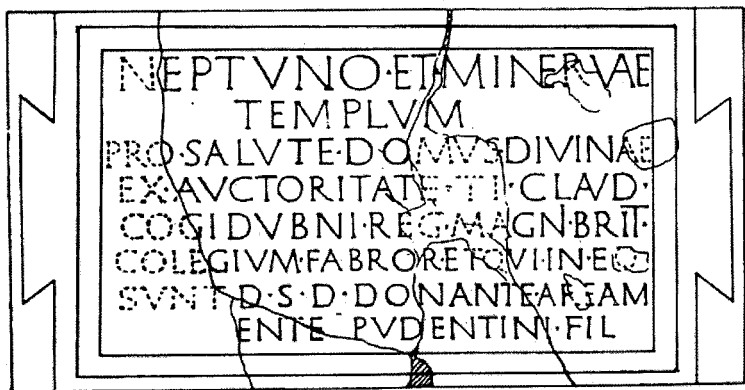 NEPTVNO·ET·MINERVAE
TEMPLVM
PRO·SALVTE·DOMVS DIVINAE
EX·AVCTORITATE·TI·CLAVD·
COGIDVBNI·REG·MAGN·BRIT·
COLEGIVM·FABROR ET QVI·IN·EO
SVNT·D·S·D·DONANTE AREAM
ENTE PVDENTINI·FIL